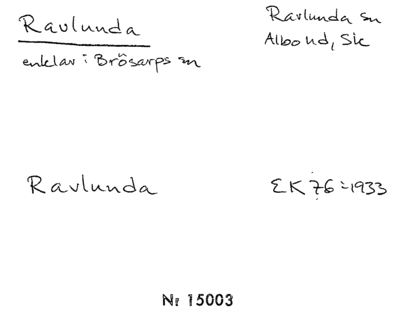 Ravlunda
enklav i Brösarps sn
Ravlunda sn
Albo hd, Sk
Ravlunda
EK 76 : 1933
Nr 15003